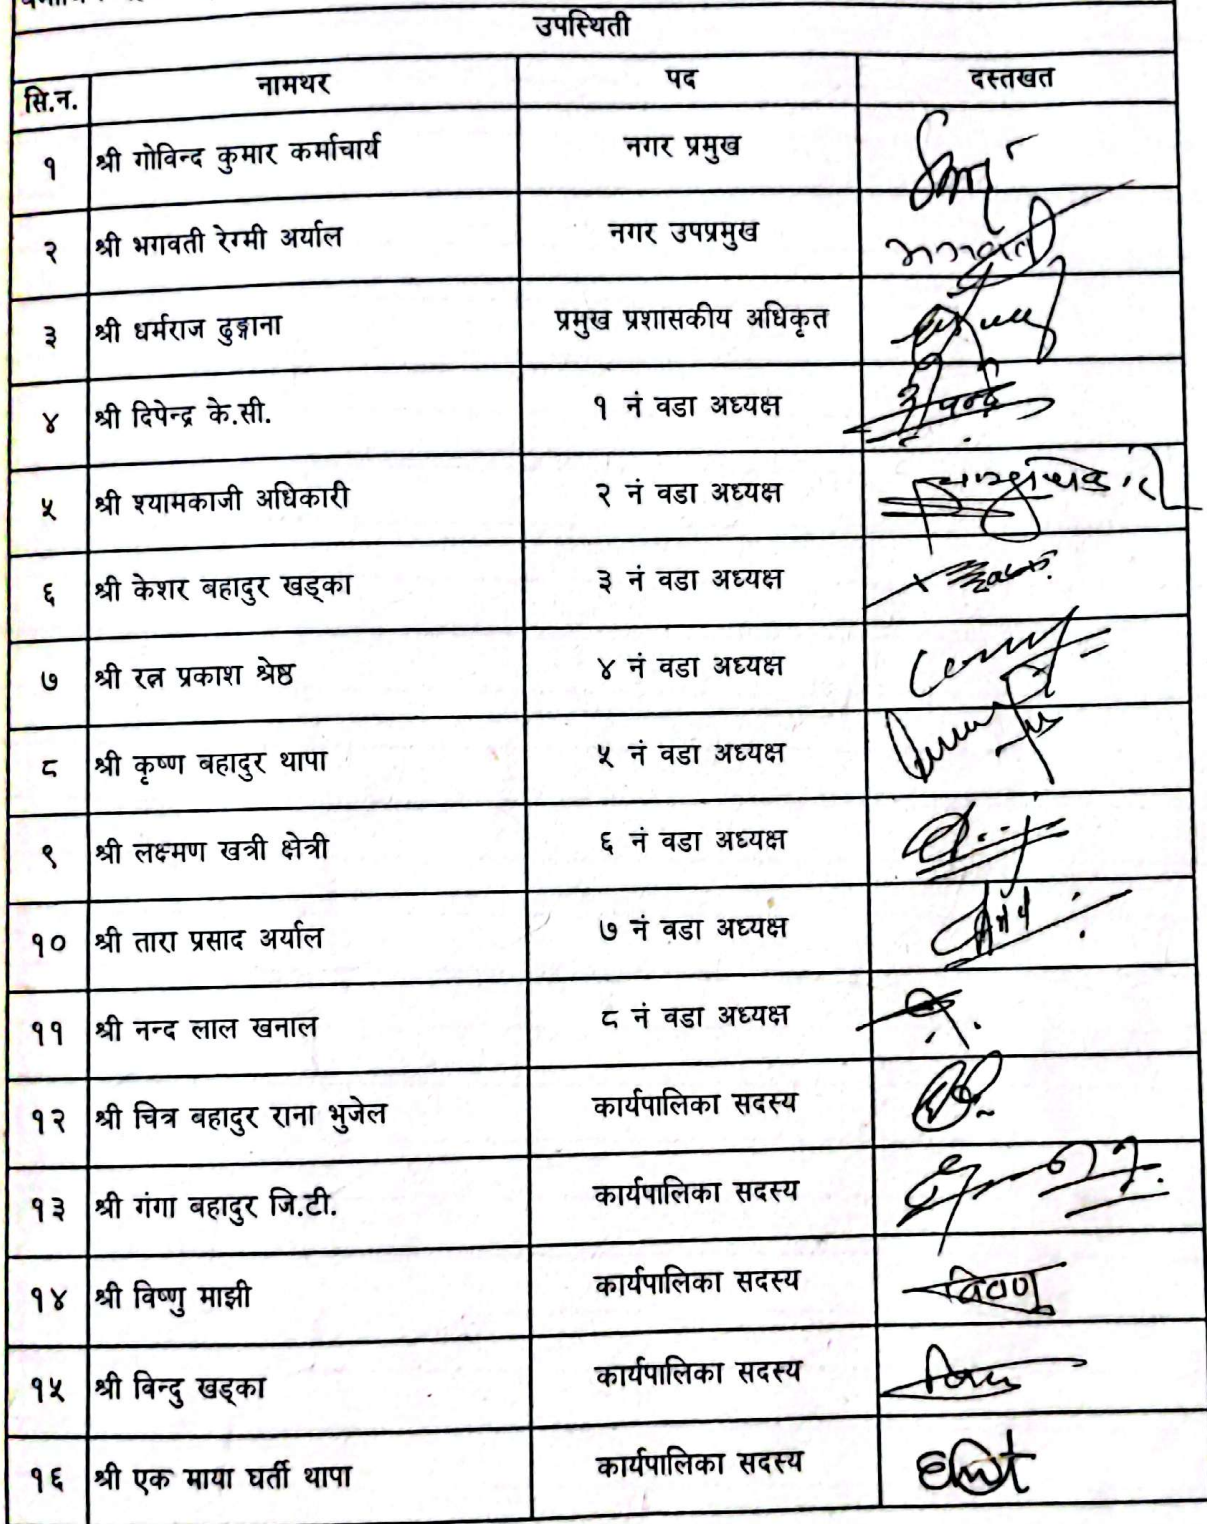 उपस्थिती
सि.न. नामथर पद दस्तखत
१ श्री गोविन्द कुमार कर्माचार्य नगर प्रमुख
२ श्री भगवती रेग्मी अर्याल नगर उपप्रमुख भगवती
३ श्री धर्मराज ढुङ्गाना प्रमुख प्रशासकीय अधिकृत
४ श्री दिपेन्द्र के.सी. १ नं वडा अध्यक्ष
५ श्री श्यामकाजी अधिकारी २ नं वडा अध्यक्ष
६ श्री केशर बहादुर खड्का ३ नं वडा अध्यक्ष
७ श्री रत्न प्रकाश श्रेष्ठ ४ नं वडा अध्यक्ष
८ श्री कृष्ण बहादुर थापा ५ नं वडा अध्यक्ष
९ श्री लक्ष्मण खत्री क्षेत्री ६ नं वडा अध्यक्ष
१० श्री तारा प्रसाद अर्याल ७ नं वडा अध्यक्ष
११ श्री नन्द लाल खनाल ८ नं वडा अध्यक्ष
१२ श्री चित्र बहादुर राना भुजेल कार्यपालिका सदस्य
१३ श्री गंगा बहादुर जि.टी. कार्यपालिका सदस्य
१४ श्री विष्णु माझी कार्यपालिका सदस्य
१५ श्री विन्दु खड्का कार्यपालिका सदस्य
१६ श्री एक माया घर्ती थापा कार्यपालिका सदस्य